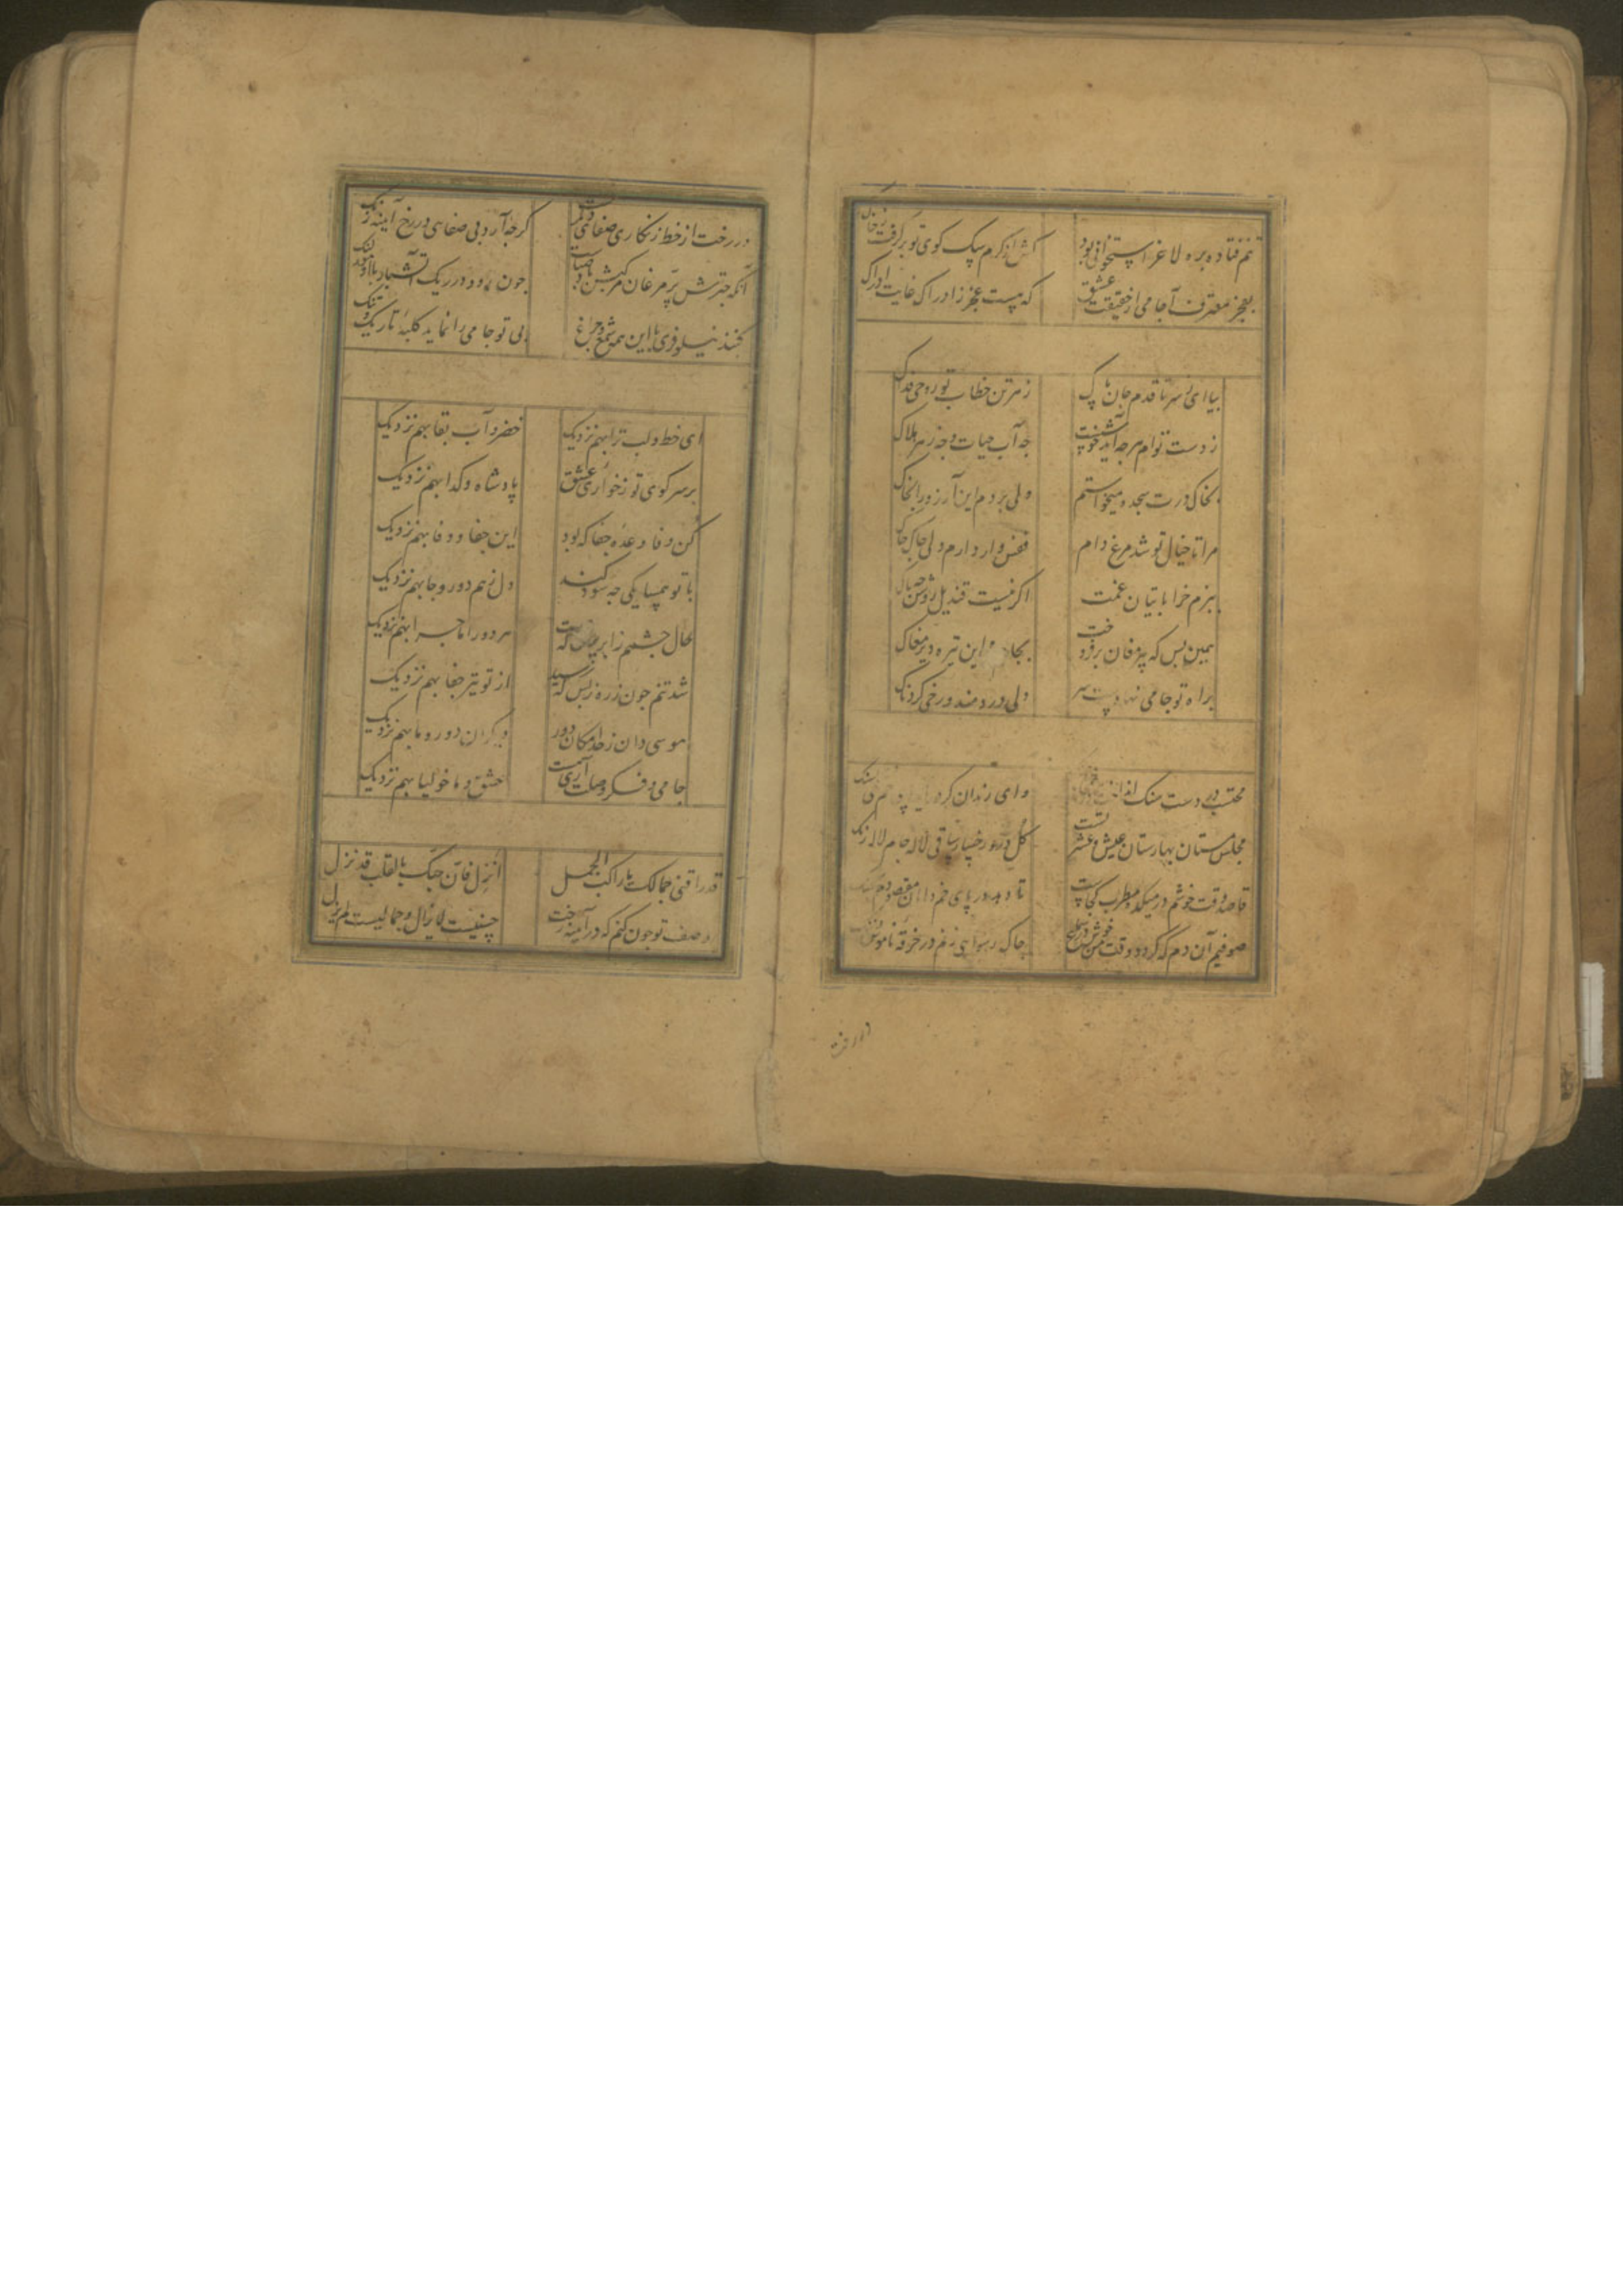 تنم فتاده بره لاغر استخوانی بود کش از کرم سک کوی تو برکرفت ز خاک
بعجز معترف آ جامی از حقیقت عشق که هست عجز ز ادراک غایت ادراک
بیا ای ز سر تا قدم جان پاک ز من ترن خطاب تو روحی فداک
ز دست توام هرچه آید خوشست چه آب حیات و چه زهر هلاک
بخاک درت سجده میخواستم ولی بردم این آرزو را بخاک
مرا تا خیال تو شد مرغ دام قفس وار دارم دلی چاک چاک
ببزم خراباتیان غمت اگر نیست قندیل روشن چه باک
همین بس که پیر مغان برفروخت بجا این تیره دیر مغاک
براه تو جامی نهد و پست سر دلی دردمند و رخی کردناک
محتسب در دست سنک وای رندان کر
مجلس مستان بهارستان عیش و عشرتست کل درو رخسار ساقی لاله جام لاله رنک
قاصد وقت خوشم در میکده مطرب کجاست تا دهد در پای خم دامان مقصودم
صوفیم آن دم که کردد وقت من خوش در سماع چاک رسوایی زنم در خرقه ناموس
در رخت از خط زنکاری صفای دیکرست کرچه آرد بی صفایی در رخ آیینه زنک
آنکه چترش پر مرغان مرکبش باد صباست چون بود در ریک آتشبار با او مور لنک
کنبد نیلوفری با این همه شمع و چراغ بی تو جامی را نماید کلبه تاریک و تنک
ای خط و لب ترا بهم نزدیک خضر و آب بقا بهم نزدیک
بر سر کوی تو ز خواری عشق پادشاه و کدا بهم نزدیک
کن وفا وعده جفا که بود این جفا و وفا بهم نزدیک
با تو همسایکی چه سود کند دل ز هم دور و جا بهم نزدیک
حال چشمم ز ابر پرس که هست هر دو را ماجرا بهم نزدیک
شد تنم چون زره ز بس که رسید از تو تیر جفا بهم نزدیک
موسی دان ز حد امکان دور دیکران دور و ما بهم نزدیک
جامی و فکر وصلت آری هست عشق و ماخولیا بهم نزدیک
قد راقنی جمالک یا راکب الجمل انزل فان حبک بالقلب قد نزل
وصف تو چون کنم که در آیینه رخت حسنیست لایزال و جمالیست لم یزل
در رخت